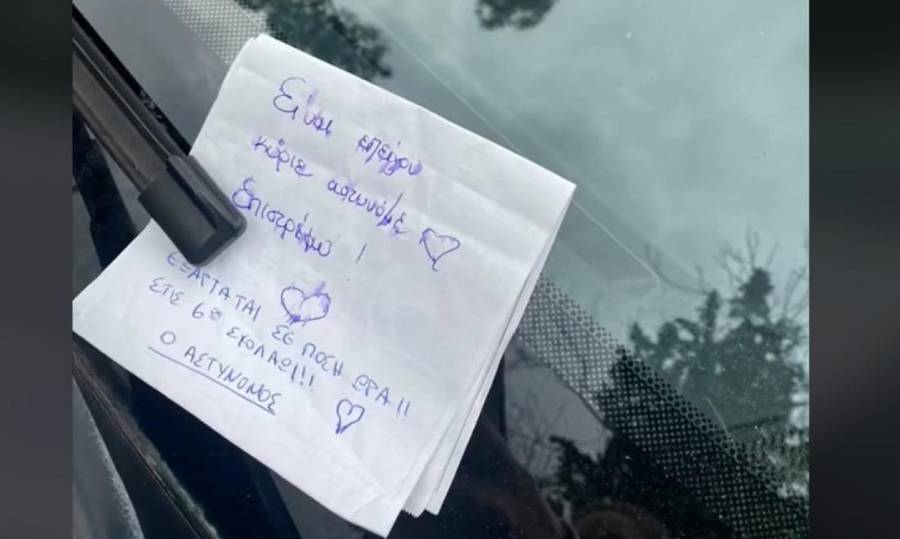 Είναι επείγον
κύριε αστυνόμε
Επιστρέφω !
ΕΞΑΡΤΑΤΑΙ ΣΕ ΠΟΣΗ ΩΡΑ!!
ΣΤΙΣ 6°° ΣΧΟΛΑΩ!!!
Ο ΑΣΤΥΝΟΝΟΣ